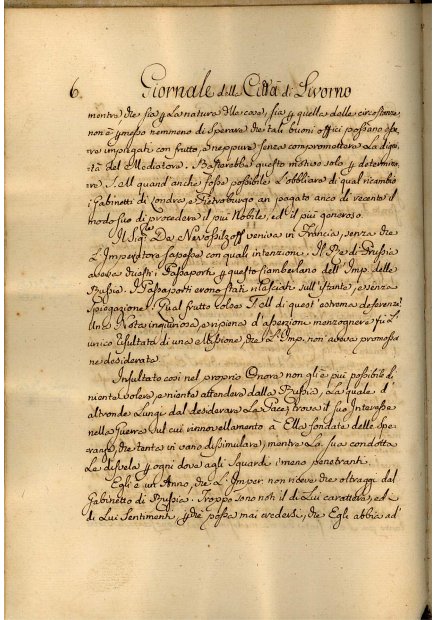 6. Giornale della Città di Livorno
mentre che sia p la natura delle cose, sia p quella delle circostanze,
non è pmesso nemmeno di sperare che tali buoni offici possano esse
re impiegati con frutto, e neppure senza compromettere la digni
tà del Mediatore. Basterebbe questo motivo solo p determina
re S.M. quand'anche fosse possibile l'obbliare di qual ricambio
i Gabinetti di Londra, e Pietroburgo an pagato anco di recente il
modo suo di procedere il più nobile, ed il più generoso.
Il Sig.re De Novosilzoff veniva in Francia, senza che
L'Imperatore sapesse con quali intenzioni. Il Re di Prussia
aveva chiesti i Passaporti p questo Ciamberlano dell'Imp. delle
Russie. I Passaporti erono stati rilasciati sull'istante, e senza
spiegazione. Qual frutto colse S.M. di quest'estrema deferenza?
Una Nota ingiuriosa, e ripiena d'asserzioni menzognere fù l'
unico resultato di una Missione, che L'Imp. non aveva promossa
ne desiderata.
Insultato così nel proprio Onore non gli è più possibile di
niente volere, e niente attendere dalla Russia, la quale d'
altronde lungi dal desiderare la Pace, trova il suo Interesse
nella Guerra sul cui rinnovellamento à Ella fondate delle spe
ranze, che tenta in vano dissimulare, mentre la sua condotta
le disvela p ogni dove agli sguardi i meno penetranti.
Egli è un Anno, che L'Imper. non riceve che oltraggi dal
Gabinetto di Russia. Troppo sono noti il di Lui carattere, ed i
di Lui Sentimenti, pchè possa mai credersi, che Egli abbia ad